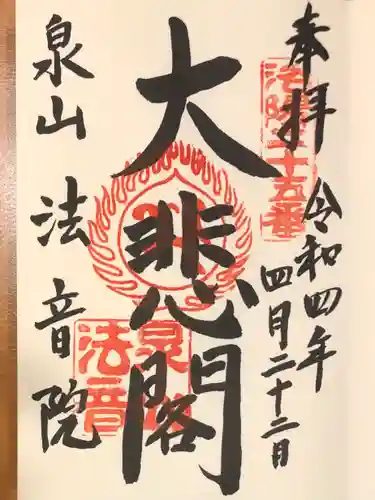 奉拝
令和四年
四月二十二日
大悲閣
泉山 法音院
二十五番
法音